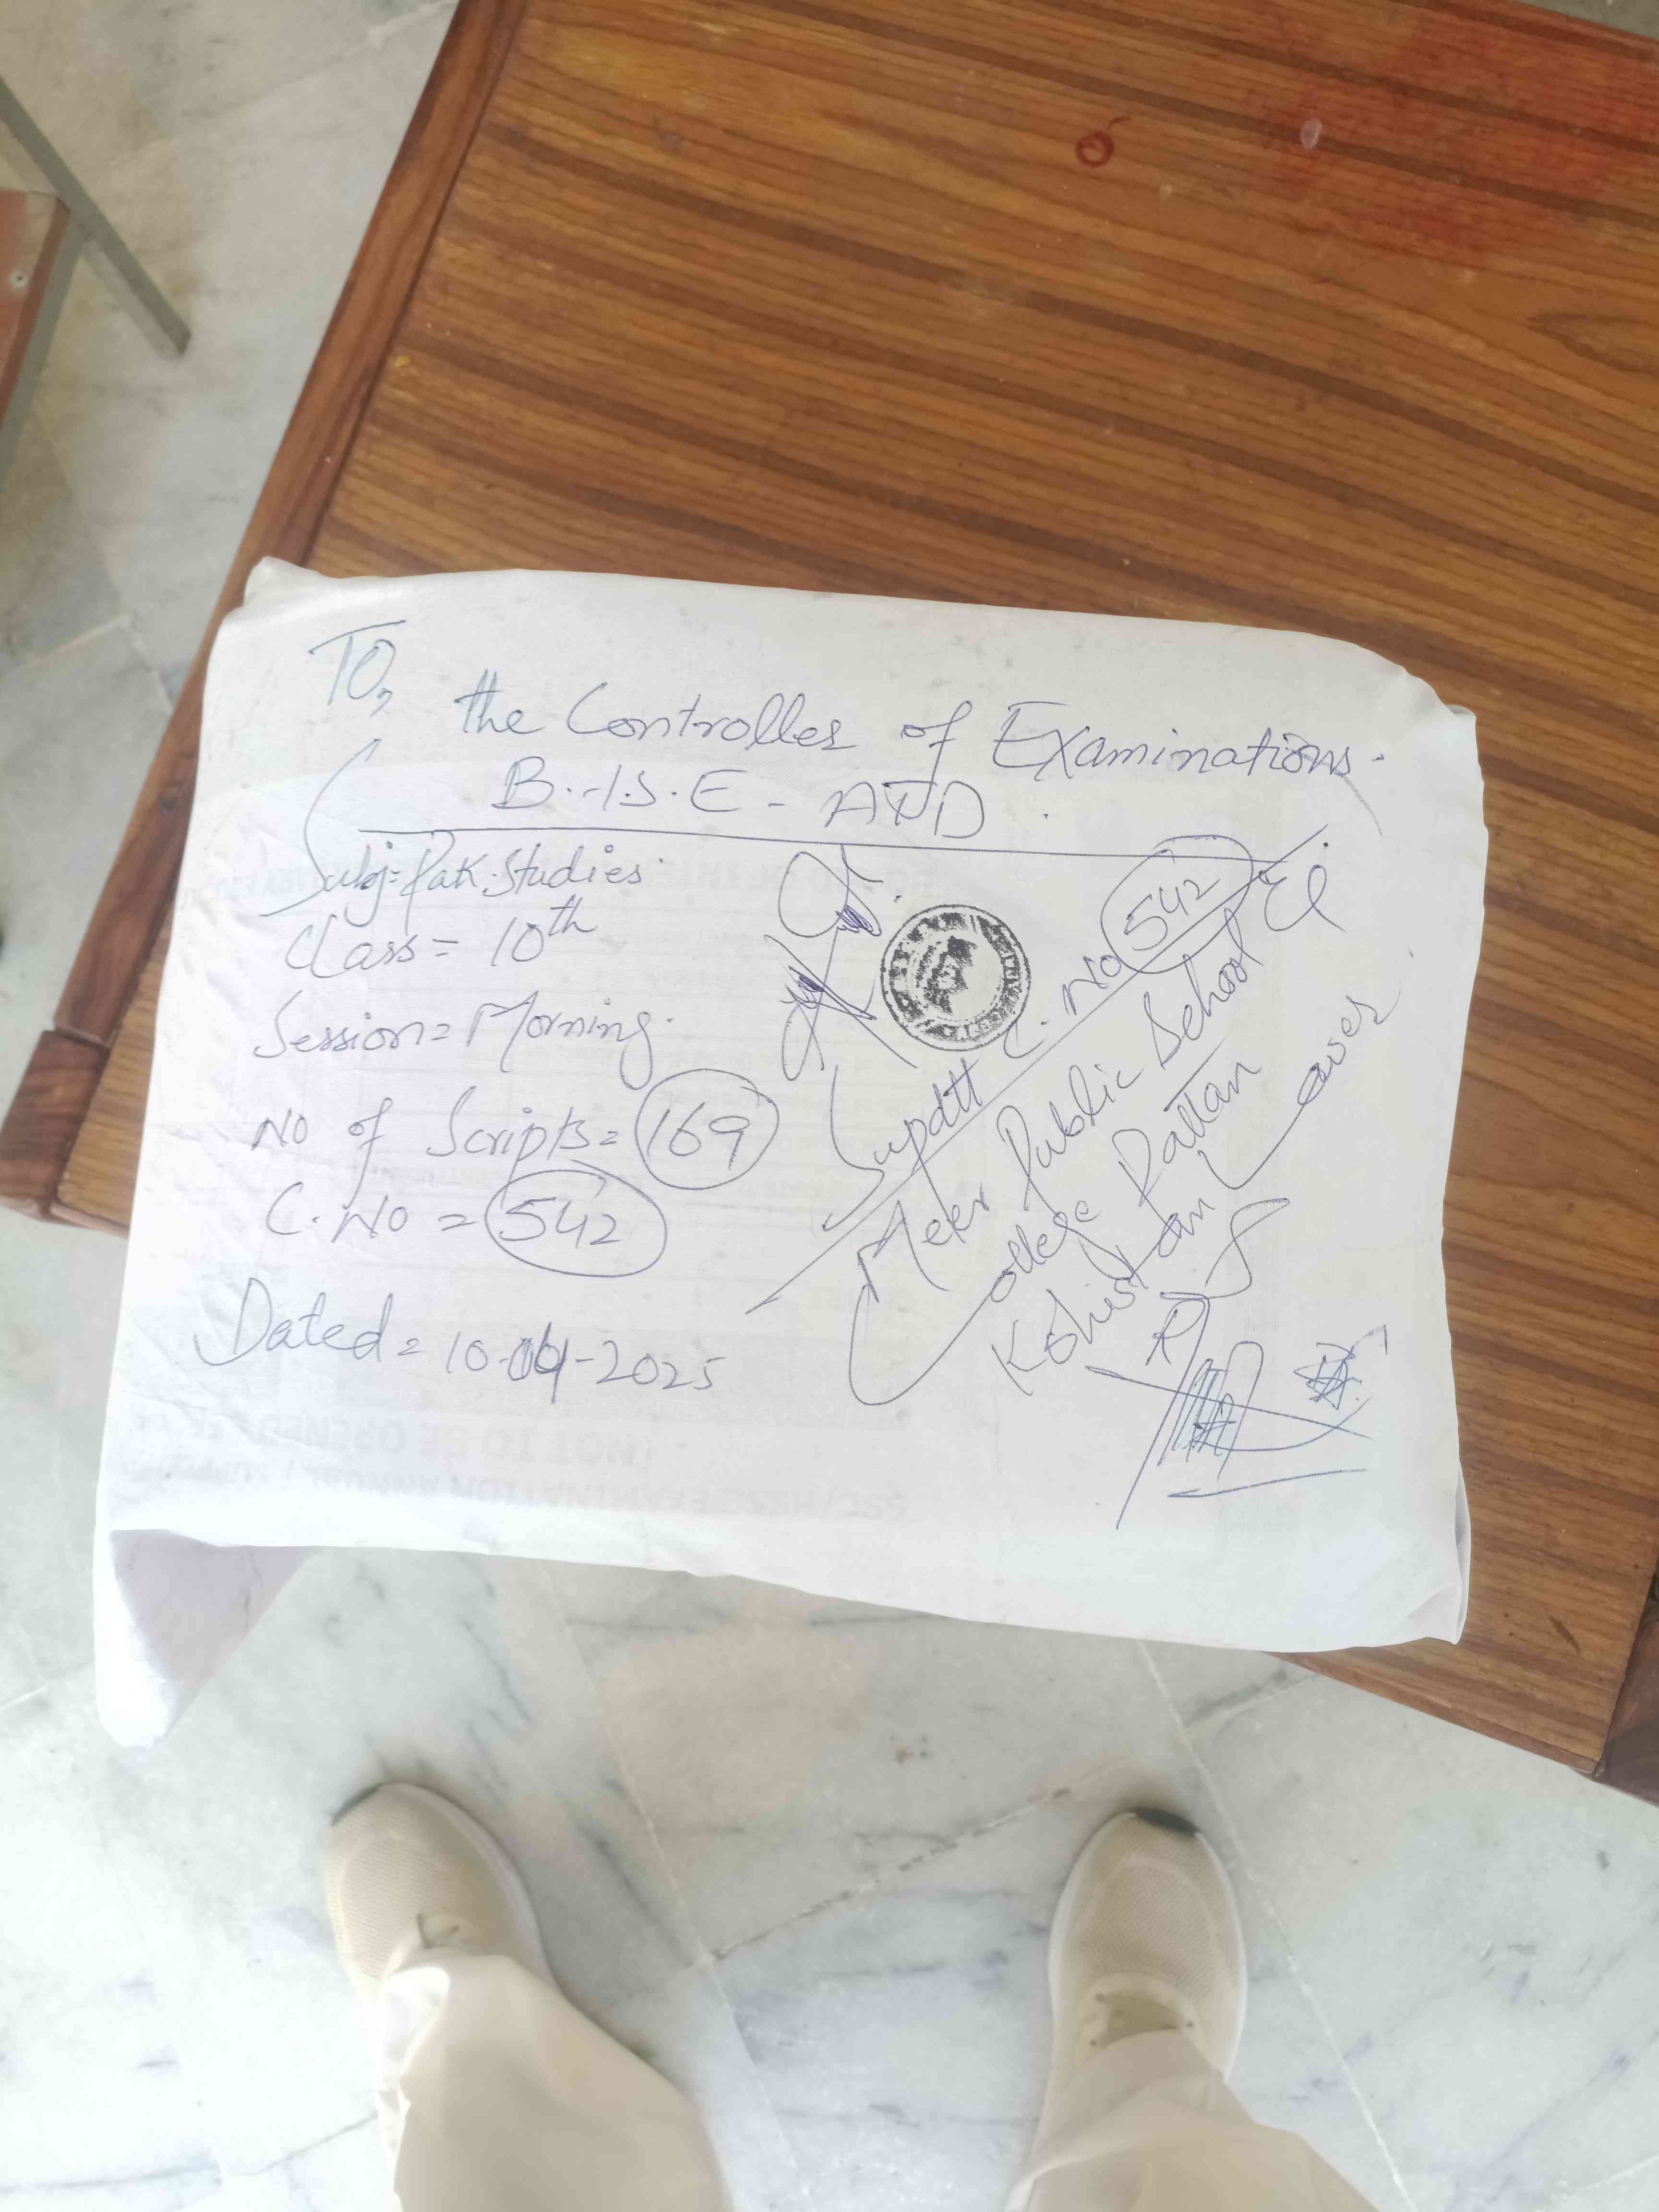 TO,
the Controller of Examinations.
B.I.S.E - ATD
Subj= Pak. Studies
Class = 10th
Session= Morning.
No of Scripts= 169
C. No = 542
Dated= 10-04-2025
Supdtt C. No 542
Meer Public School &
College Pattan
Kohistan Lower
NOT TO BE OPENED
SSC/HSSC EXAMINATION ANNUAL /